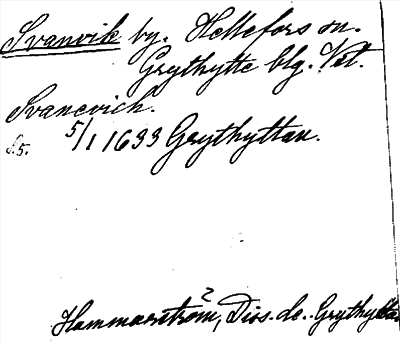 Svanvik by. Hellefors sn.
Grythytte blg. Vstl.
Svanevich.
S.5. 5/1 1633 Grythyttan.
Hammarström², Diss. de. Grythytta